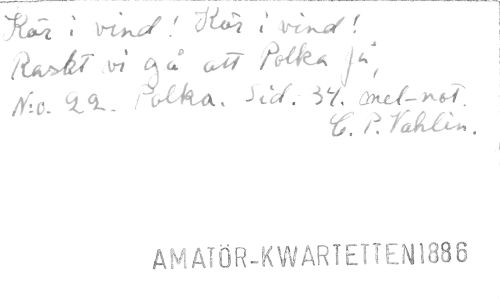 Kör i vind! Kör i vind!
Raskt vi gå att Polka få,
N:o. 22. Polka. Sid. 34. mel-not.
C. P. Vahlin.
AMATÖR-KWARTETTEN 1886